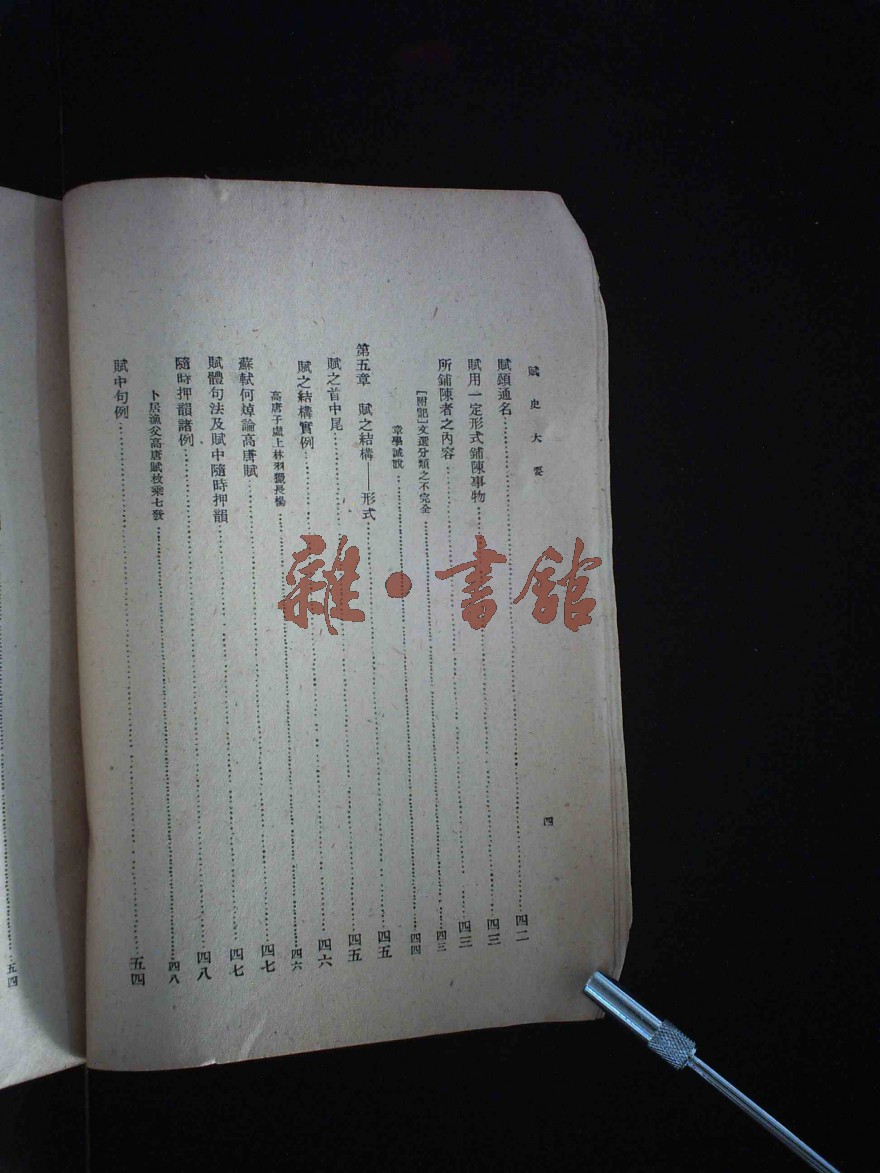 賦史大要
四
賦頌通名……四二
賦用一定形式鋪陳事物……四三
所鋪陳者之內容……四三
[附記]文選分類之不完全……四三
章學誠說……四四
第五章　賦之結構——形式……四五
賦之首中尾……四五
賦之結構實例……四六
高唐子虛上林羽獵長楊……四六
蘇軾何焯論高唐賦……四七
賦體句法及賦中隨時押韻……四七
隨時押韻諸例……四八
卜居漁父高唐賦枚乘七發……四八
賦中句例……五四
五四
雜·書館